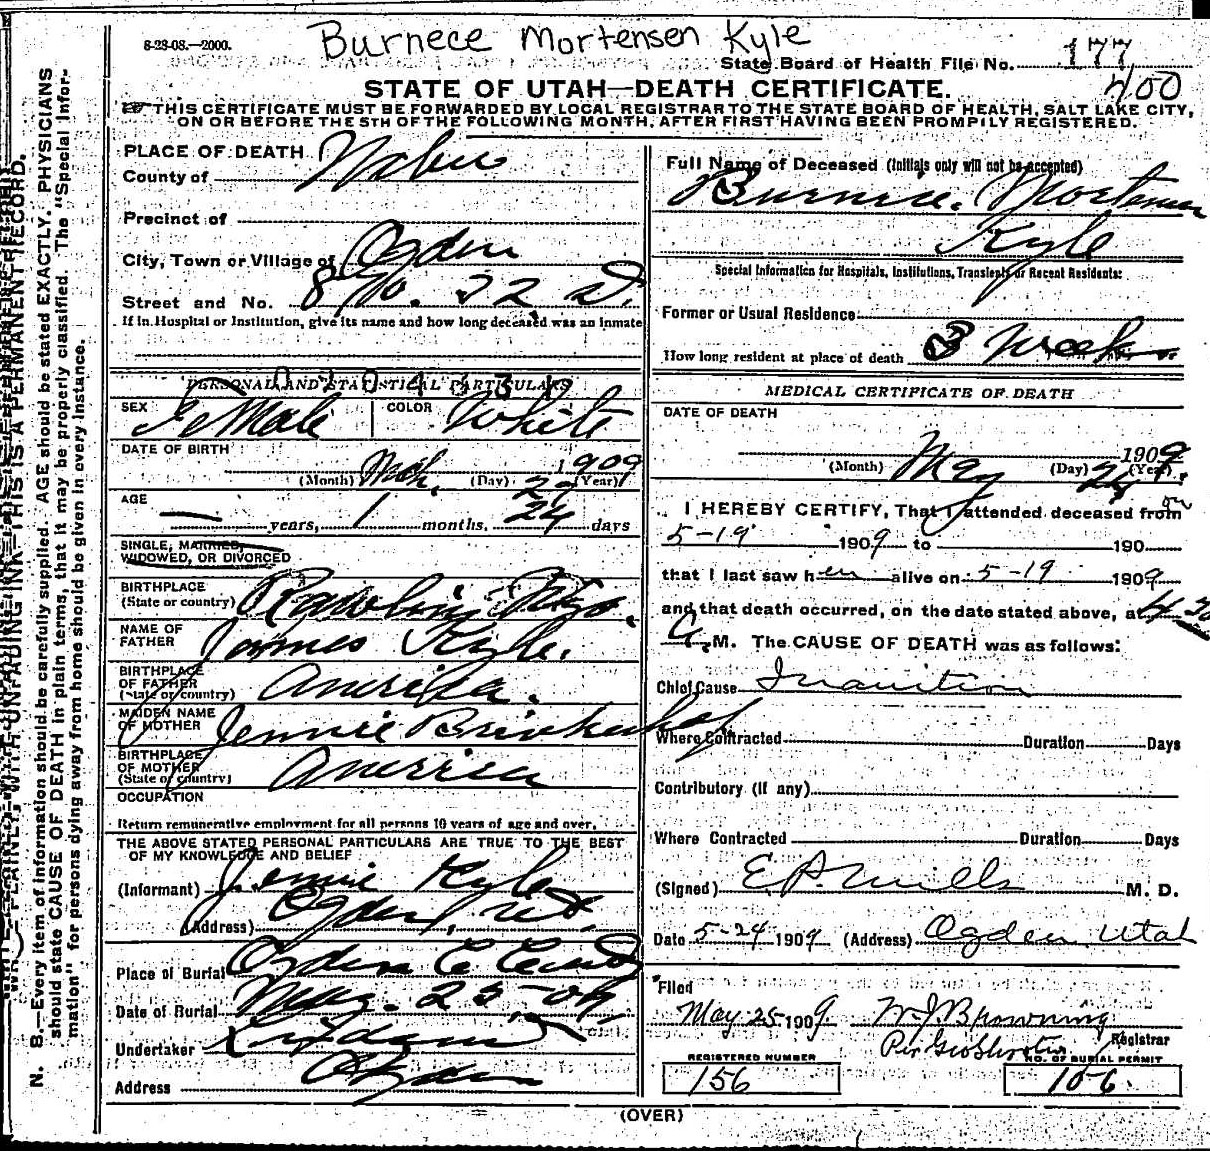 8-28-08.—2000.
Burnece Mortensen Kyle
State Board of Health File No. 177
400
STATE OF UTAH—DEATH CERTIFICATE.
THIS CERTIFICATE MUST BE FORWARDED BY LOCAL REGISTRAR TO THE STATE BOARD OF HEALTH, SALT LAKE CITY,
ON OR BEFORE THE 5TH OF THE FOLLOWING MONTH, AFTER FIRST HAVING BEEN PROMPTLY REGISTERED.
PLACE OF DEATH
County of Weber
Precinct of
City, Town or Village of Ogden
Street and No. 22
If in Hospital or Institution, give its name and how long deceased was an inmate
PERSONAL AND STATISTICAL PARTICULARS
SEX Female COLOR White
DATE OF BIRTH
Mch. 29 1909
(Month) (Day) (Year)
AGE
— years, 1 months, 24 days
SINGLE, MARRIED,
WIDOWED, OR DIVORCED
BIRTHPLACE
(State or country) Rawlins Wyo.
NAME OF
FATHER James Kyle.
BIRTHPLACE
OF FATHER
(State or country) America.
MAIDEN NAME
OF MOTHER Jennie
BIRTHPLACE
OF MOTHER
(State or country) America
OCCUPATION
Return remunerative employment for all persons 10 years of age and over.
THE ABOVE STATED PERSONAL PARTICULARS ARE TRUE TO THE BEST
OF MY KNOWLEDGE AND BELIEF
(Informant) Jennie Kyle
(Address) Ogden, Ut.
Place of Burial Ogden C
Date of Burial May. 25-09
Undertaker
Address Ogden
Full Name of Deceased (Initials only will not be accepted)
Burnice. Mortensen
Kyle
Special Information for Hospitals, Institutions, Transients or Recent Residents:
Former or Usual Residence
How long resident at place of death 3 Weeks
MEDICAL CERTIFICATE OF DEATH
DATE OF DEATH
May 24 1909.
(Month) (Day) (Year)
I HEREBY CERTIFY, That I attended deceased from on
5-19 1909 to 190
that I last saw her alive on 5-19 1909
and that death occurred, on the date stated above, at 4 30
A. M. The CAUSE OF DEATH was as follows:
Chief Cause Inanition
Where Contracted Duration Days
Contributory (If any)
Where Contracted Duration Days
(Signed) E. P. Mills M. D.
Date 5-24 1909 (Address) Ogden Utah
Filed
May 25 1909. W. J. Browning
Registrar
Per Geo Shorten
REGISTERED NUMBER NO. OF BURIAL PERMIT
156 106.
(OVER)
N. B.—Every item of information should be carefully supplied. AGE should be stated EXACTLY. PHYSICIANS
should state CAUSE OF DEATH in plain terms, that it may be properly classified. The "Special Infor-
mation" for persons dying away from home should be given in every instance.
WRITE PLAINLY, WITH UNFADING INK—THIS IS A PERMANENT RECORD.